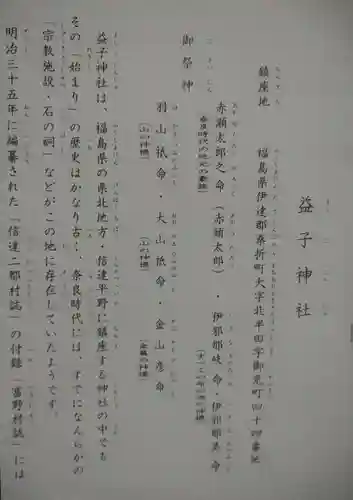 益子神社
鎮座地 福島県伊達郡桑折町大字北半田字御免町四十四番地
御祭神
赤瀬太郎之命(赤頭太郎)・伊邪那岐命・伊邪那美命
(奈良時代の地元の豪族)
羽山祇命・大山祇命・金山彦命
(山の神様)
(山の神様)
(金属の神様)
益子神社は、福島県の県北地方・信達平野に鎮座する神社の中でも
その「始まり」の歴史はかなり古く、奈良時代には、すでになんらかの
「宗教施設・石の祠」などがこの地に存在していたようです。
明治三十五年に編纂された「信達二郡村誌」の付録「富野村誌」には